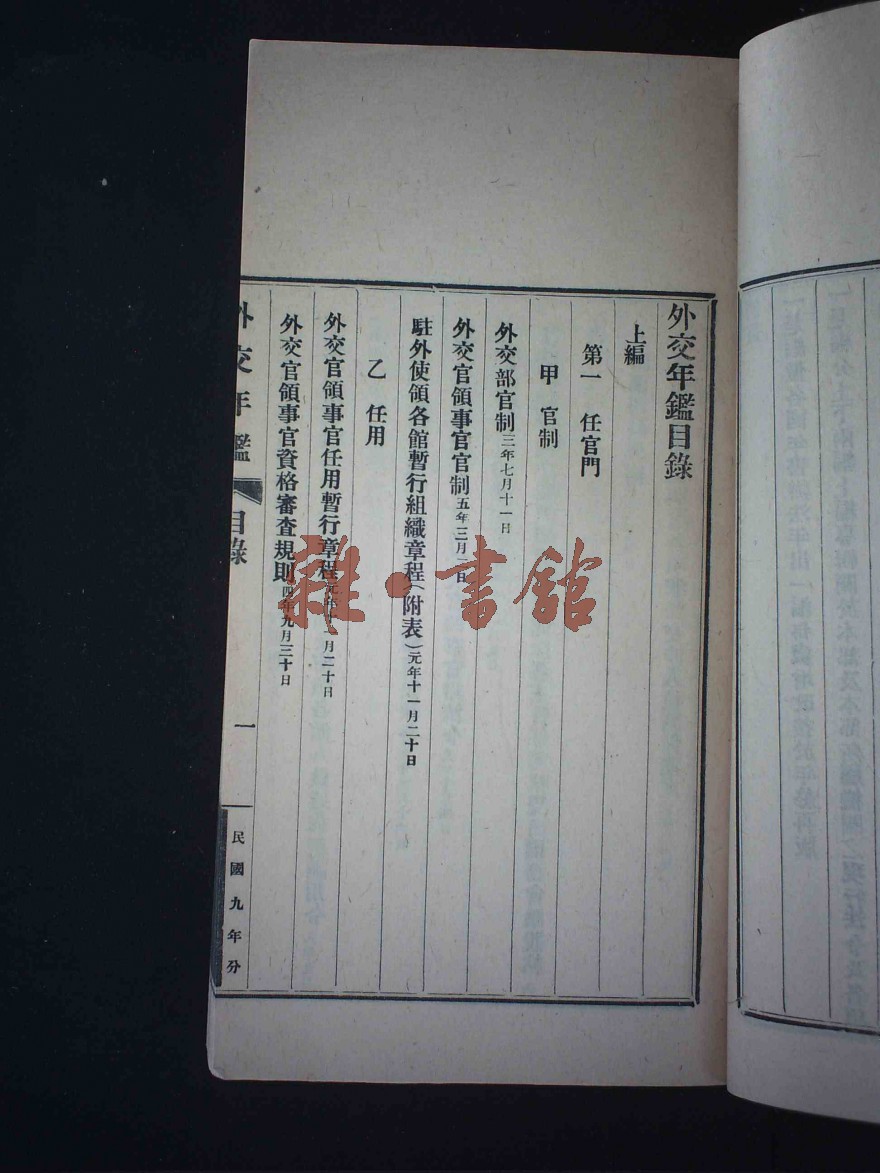 外交年鑑目錄
上編
第一 任官門
甲 官制
外交部官制三年七月十一日
外交官領事官官制五年三月二日
駐外使領各館暫行組織章程(附表)元年十一月二十日
乙 任用
外交官領事官任用暫行章程元年十一月二十日
外交官領事官資格審查規則四年九月三十日
外交年鑑 目錄 一 民國九年分
雜·書館